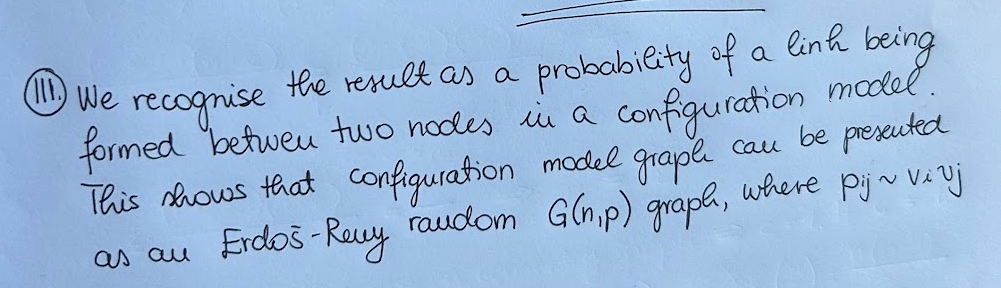 III. We recognise the result as a probability of a link being
formed betwen two nodes in a configuration model.
This shows that configuration model graph can be presented
as an Erdoš-Reny random G(n,p) graph, where pij ~ vivj